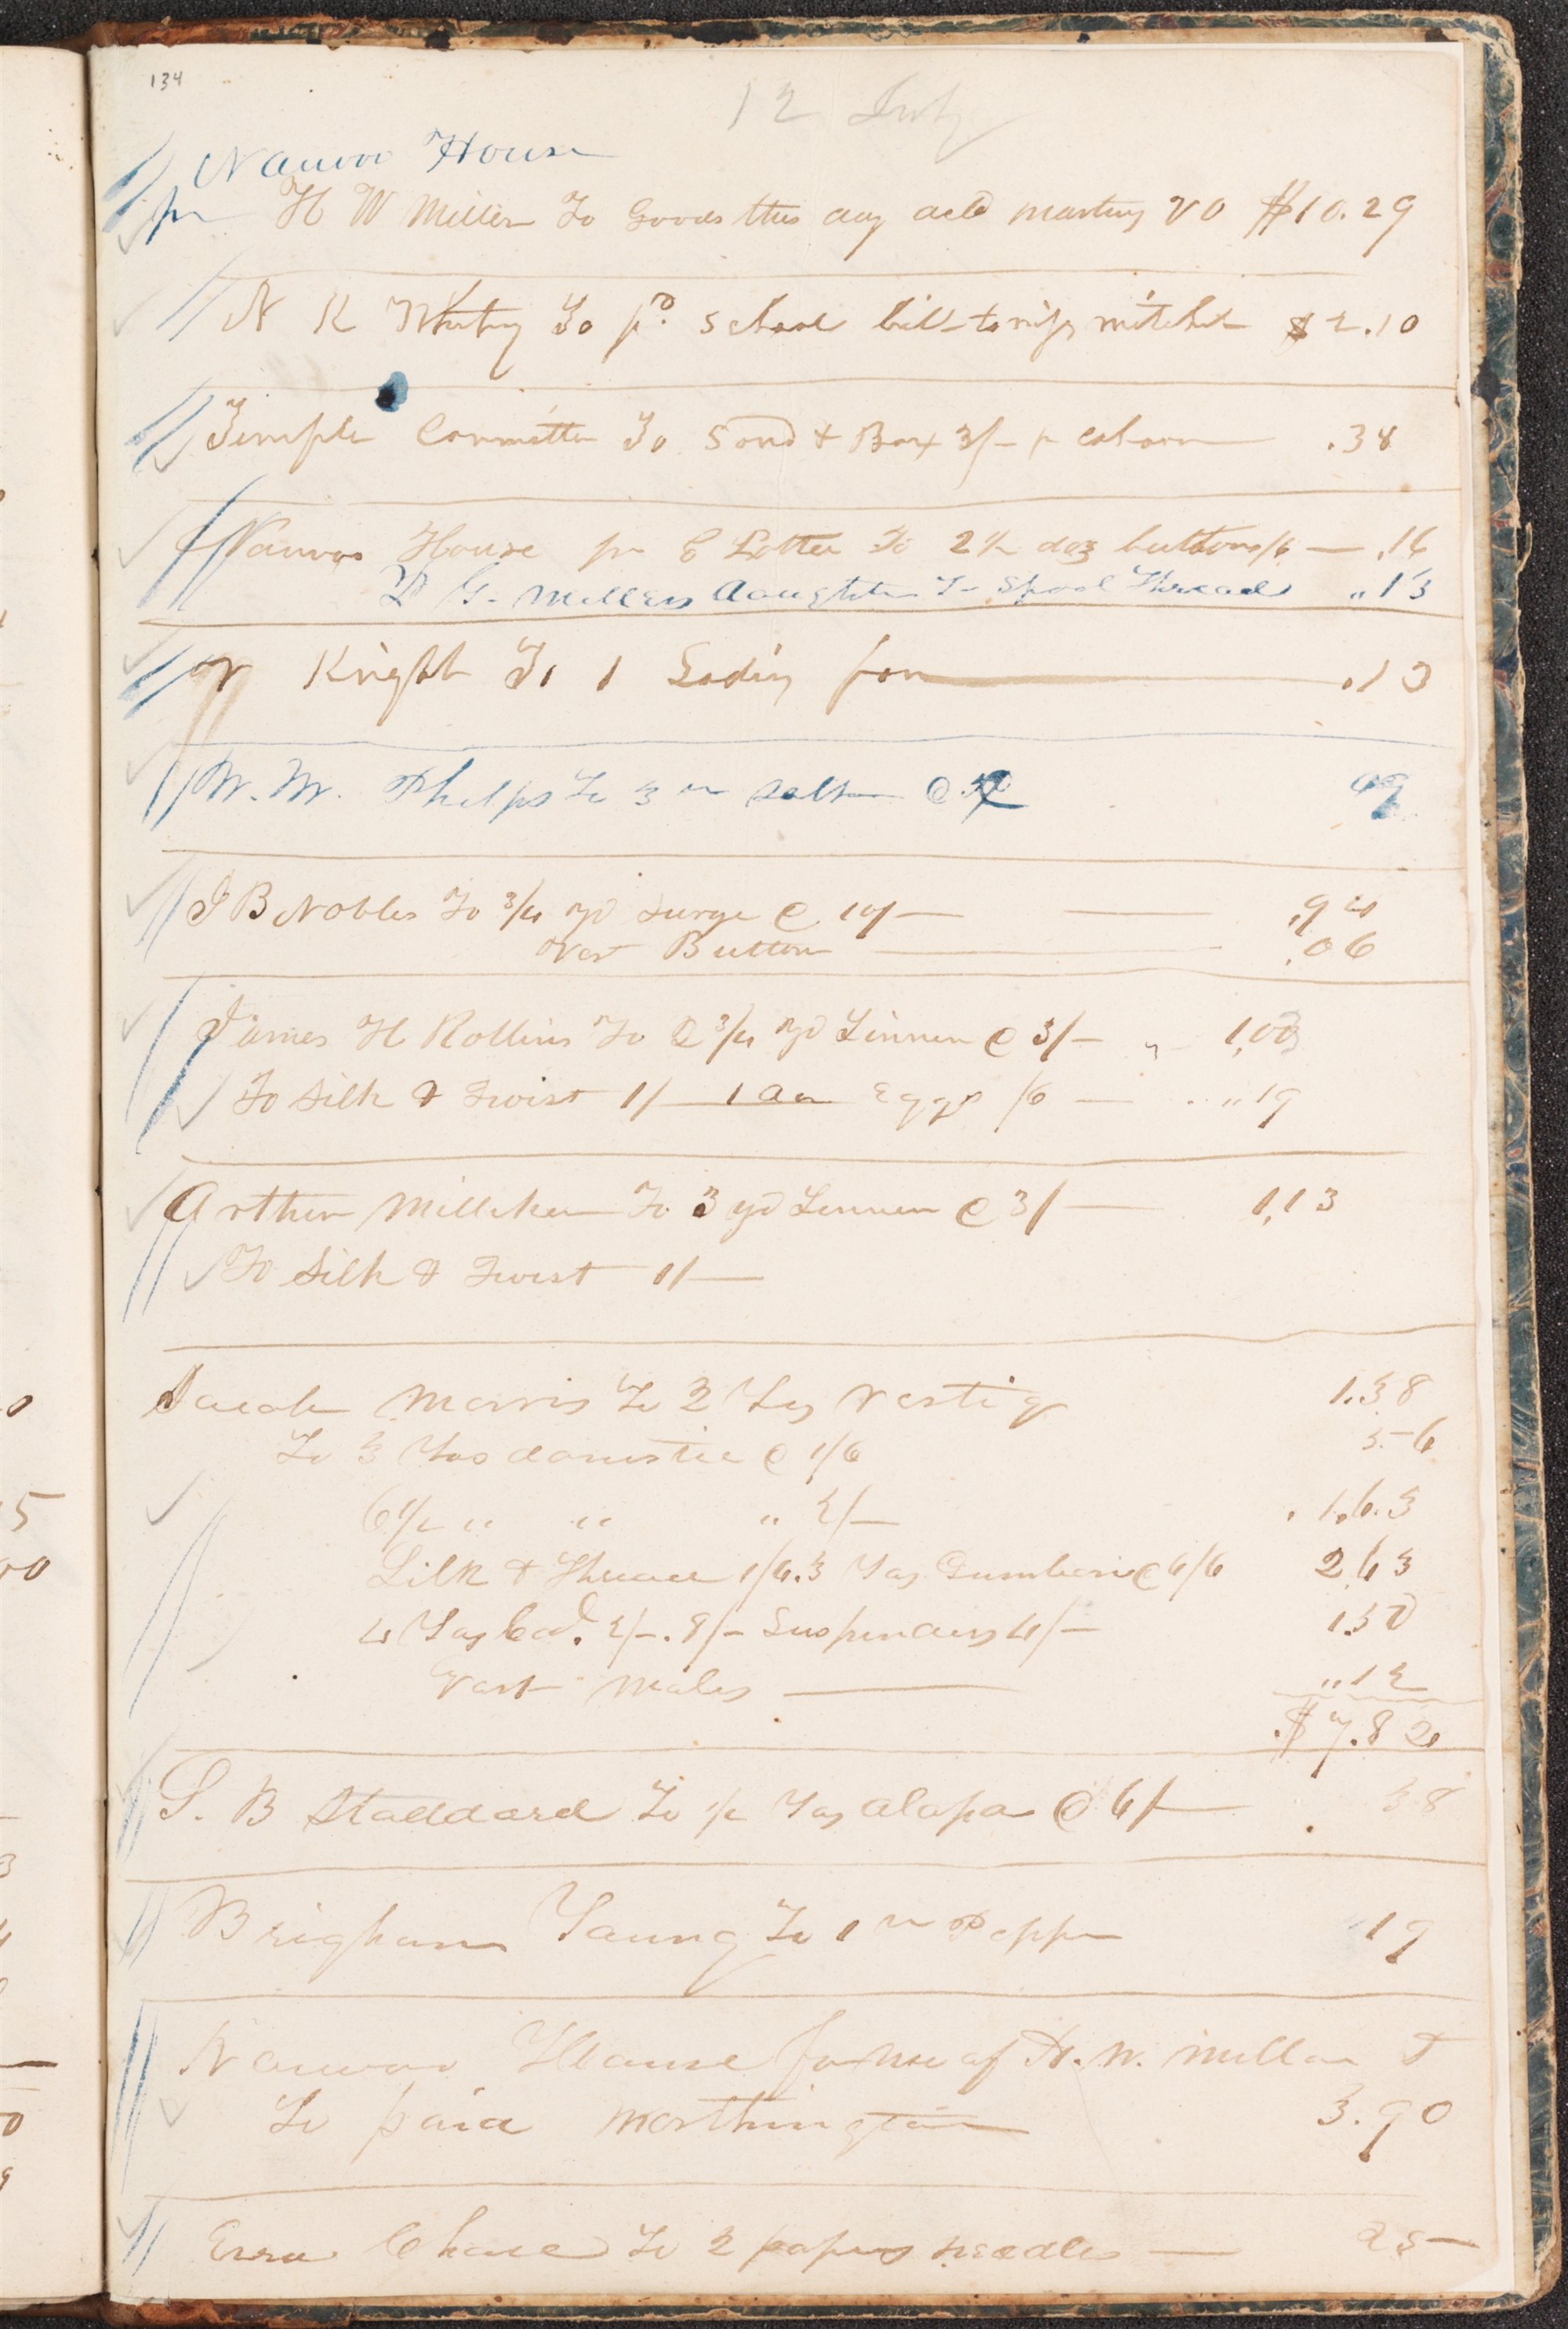 134
12 July
Nauvoo House
pr H W Miller To Goods this day acld 20 $10.29
N K Whitney To pd. School bill to mitchel $2.10
Temple Committee To Sand & Box 3/– pr Cahoon .38
Nauvoo House pr C Lotter To 2½ doz buttons /6 — .16
D G. Millers daughter To Spool Thread „13
V Knight To 1 Ladies fan .13
W. W. Phelps To 3 salt @ 09
J B Nobles To 3/4 yd Surge @ 10/— .94
Vest Button .06
James H Rollins To 2 3/4 yd Linnen @ 3/– „ 1,03
To Silk & Twist 1/ 1 dn Eggs /6 — „19
Arthur Milliken To 3 yd Linnen @ 3/– 1,13
To Silk & Twist 1/—
Jacob Morris To 2 Yds Vestig 1.38
To 3 Yds domestic @ 1/6 56
6½ „ „ „ 2/– 1.63
Silk & Thread 1/6. 3 Yds @ 6/6 2.63
4 Yds Cod. 2/–. 8/– Suspenders 4/– 1.50
Vast Males „12
$7.82
S. B Staddard To ½ Yds alapa @ 6/— 38
Brigham Young To 1 Pepper 19
Nauvoo House for use of H. W. Millar
To paid Worthington 3.90
Ezra Chase To 2 papers needles — 25